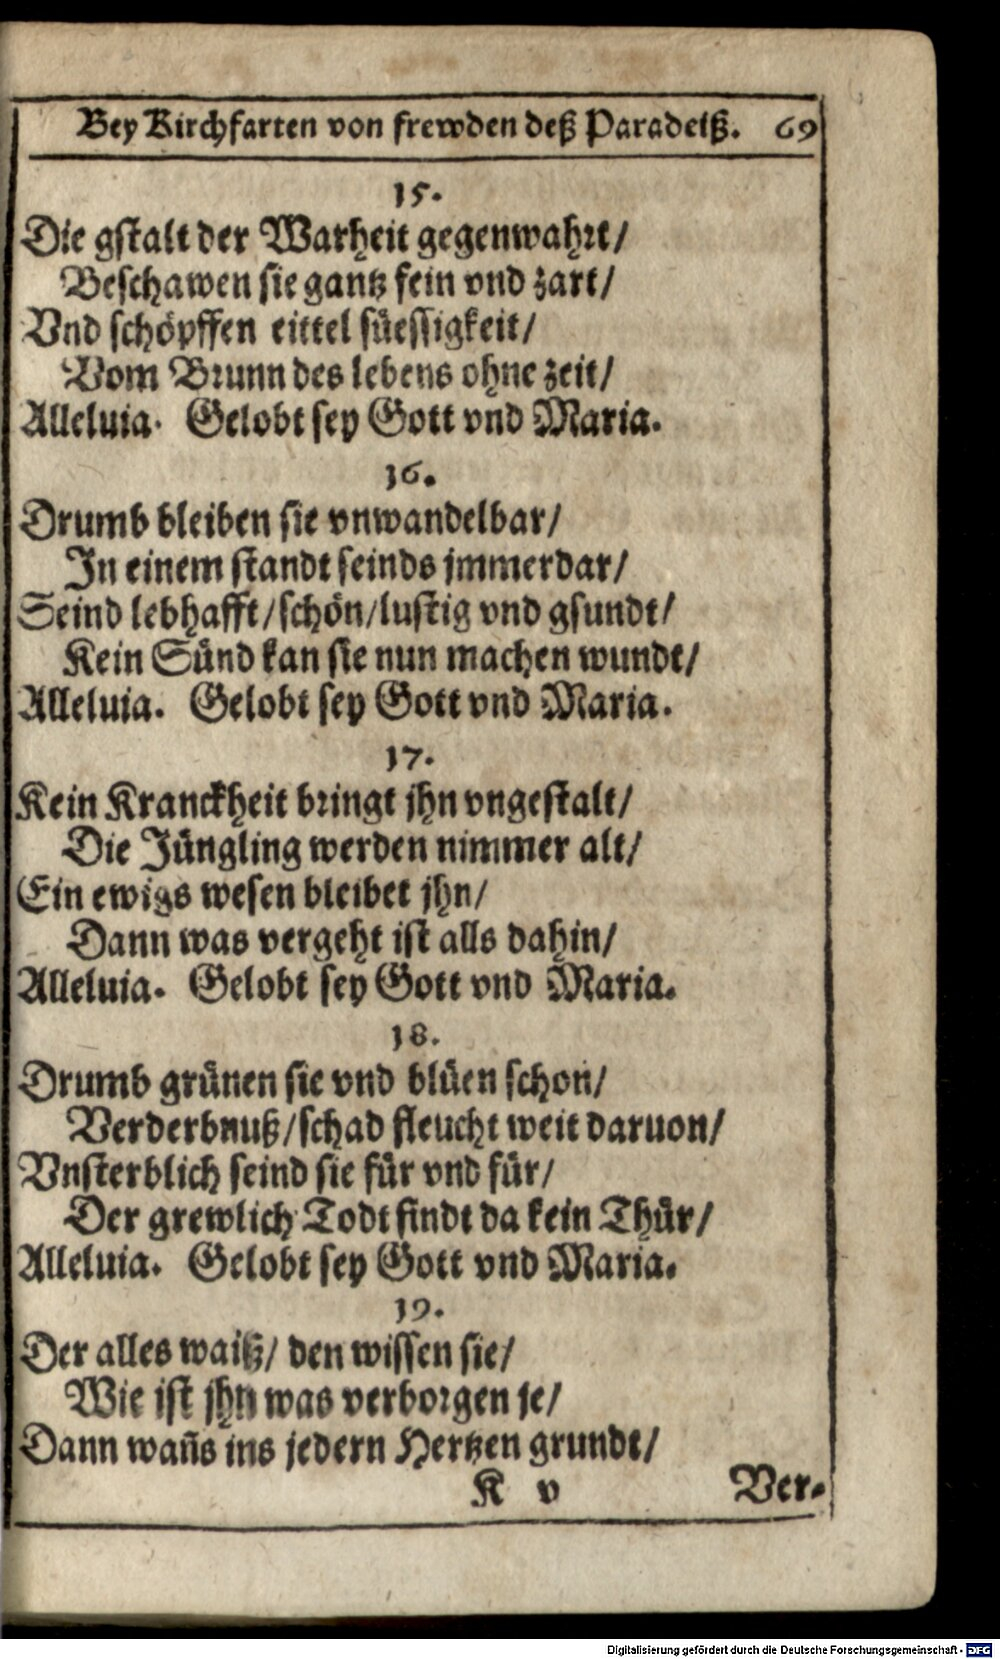 Bey Kirchfarten von frewden deß Paradeiß. 69
15.
Die gstalt der Warheit gegenwahrt/
Beschawen sie gantz fein vnd zart/
Vnd schöpffen eittel süessigkeit/
Vom Brunn des lebens ohne zeit/
Alleluia. Gelobt sey Gott vnd Maria.
16.
Drumb bleiben sie vnwandelbar/
In einem standt seinds jmmerdar/
Seind lebhafft/schön/lustig vnd gsundt/
Kein Sünd kan sie nun machen wundt/
Alleluia. Gelobt sey Gott vnd Maria.
17.
Kein Kranckheit bringt jhn vngestalt/
Die Jüngling werden nimmer alt/
Ein ewigs wesen bleibet jhn/
Dann was vergeht ist alls dahin/
Alleluia. Gelobt sey Gott vnd Maria.
18.
Drumb grünen sie vnd blüen schon/
Verderbnuß/schad fleucht weit daruon/
Vnsterblich seind sie für vnd für/
Der grewlich Todt findt da kein Thür/
Alleluia. Gelobt sey Gott vnd Maria.
19.
Der alles waiß/ den wissen sie/
Wie ist jhn was verborgen je/
Dann wañs ins jedern Hertzen grundt/
K v Ver-
Digitalisierung gefördert durch die Deutsche Forschungsgemeinschaft - DFG